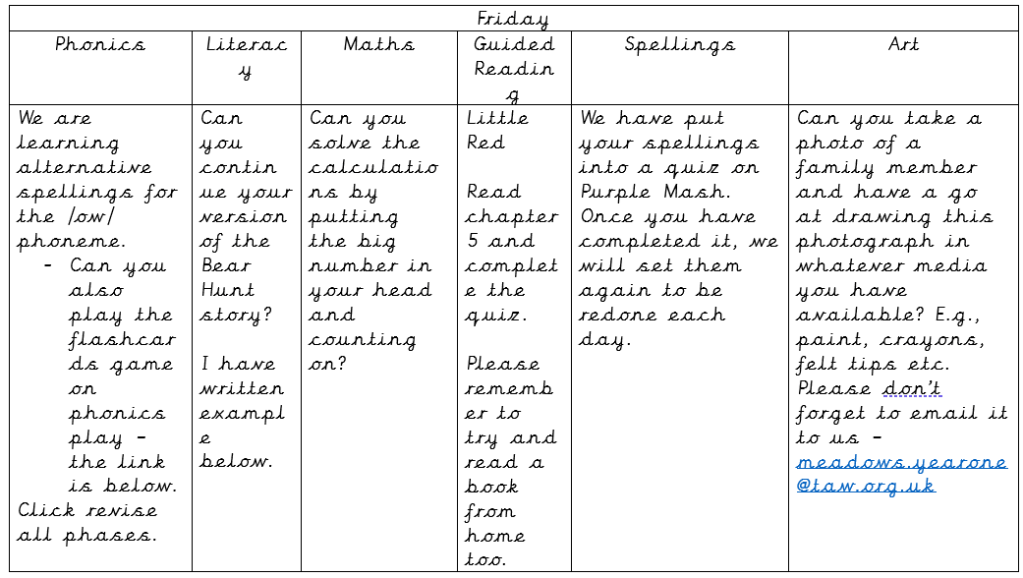 Friday
Phonics
Literac
y
Maths
Guided
Readin
g
Spellings
Art
We are
learning
alternative
spellings for
the /ow/
phoneme.
- Can you
also
play the
flashcar
ds game
on
phonics
play -
the link
is below.
Click revise
all phases.
Can
you
contin
ue your
version
of the
Bear
Hunt
story?
I have
written
exampl
e
below.
Can you
solve the
calculatio
ns by
putting
the big
number in
your head
and
counting
on?
Little
Red
Read
chapter
5 and
complet
e the
quiz.
Please
rememb
er to
try and
read a
book
from
home
too.
We have put
your spellings
into a quiz on
Purple Mash.
Once you have
completed it, we
will set them
again to be
redone each
day.
Can you take a
photo of a
family member
and have a go
at drawing this
photograph in
whatever media
you have
available? E.g.,
paint, crayons,
felt tips etc.
Please don't
forget to email it
to us -
meadows.yearone
@taw.org.uk